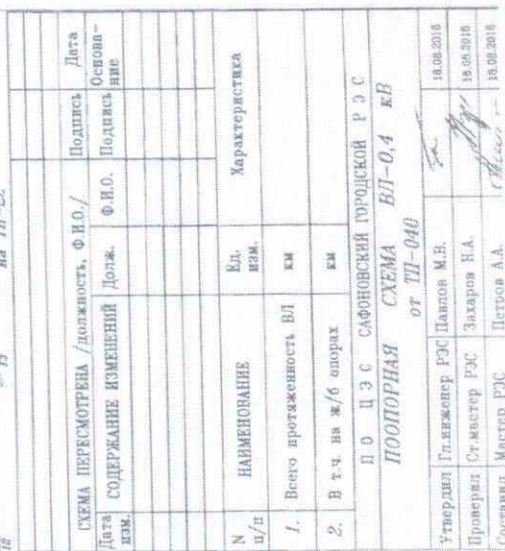 12
13
на ТП-
СХЕМА ПЕРЕСМОТРЕНА /должность, Ф.И.О./ Подпись Дата
Дата изм. СОДЕРЖАНИЕ ИЗМЕНЕНИЙ Долж. Ф.И.О. Подпись Основа-
ние
N п/п НАИМЕНОВАНИЕ Ед. изм. Характеристика
1. Всего протяженность ВЛ км
2. В т.ч. на ж/б опорах км
П О Ц Э С САФОНОВСКИЙ ГОРОДСКОЙ Р Э С
ПООПОРНАЯ СХЕМА ВЛ-0,4 кВ
от ТП-040
Утвердил Гл.инженер РЭС Павлов М.В. 18.08.2016
Проверил Ст.мастер РЭС Захаров Н.А. 18.08.2016
Составил Мастер РЭС Петров А.А. 18.08.2016